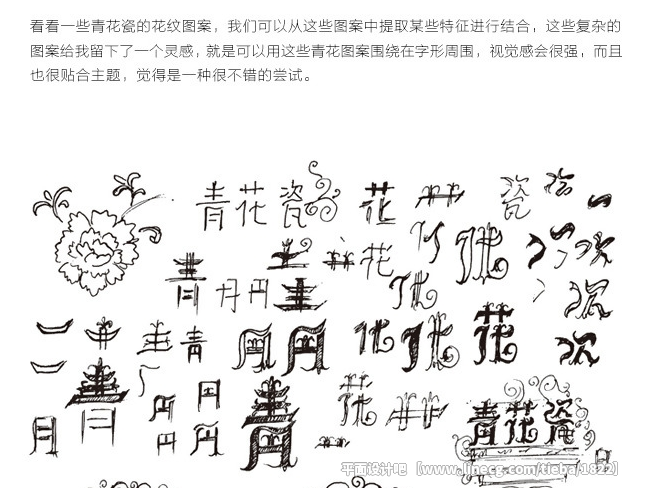 看看一些青花瓷的花纹图案，我们可以从这些图案中提取某些特征进行结合，这些复杂的
图案给我留下了一个灵感，就是可以用这些青花图案围绕在字形周围，视觉感会很强，而且
也很贴合主题，觉得是一种很不错的尝试。
青花瓷 花 艹 瓷
花
青
青
青 花
青 花
青花瓷
平面设计吧【www.linecg.com/tieba/1822】